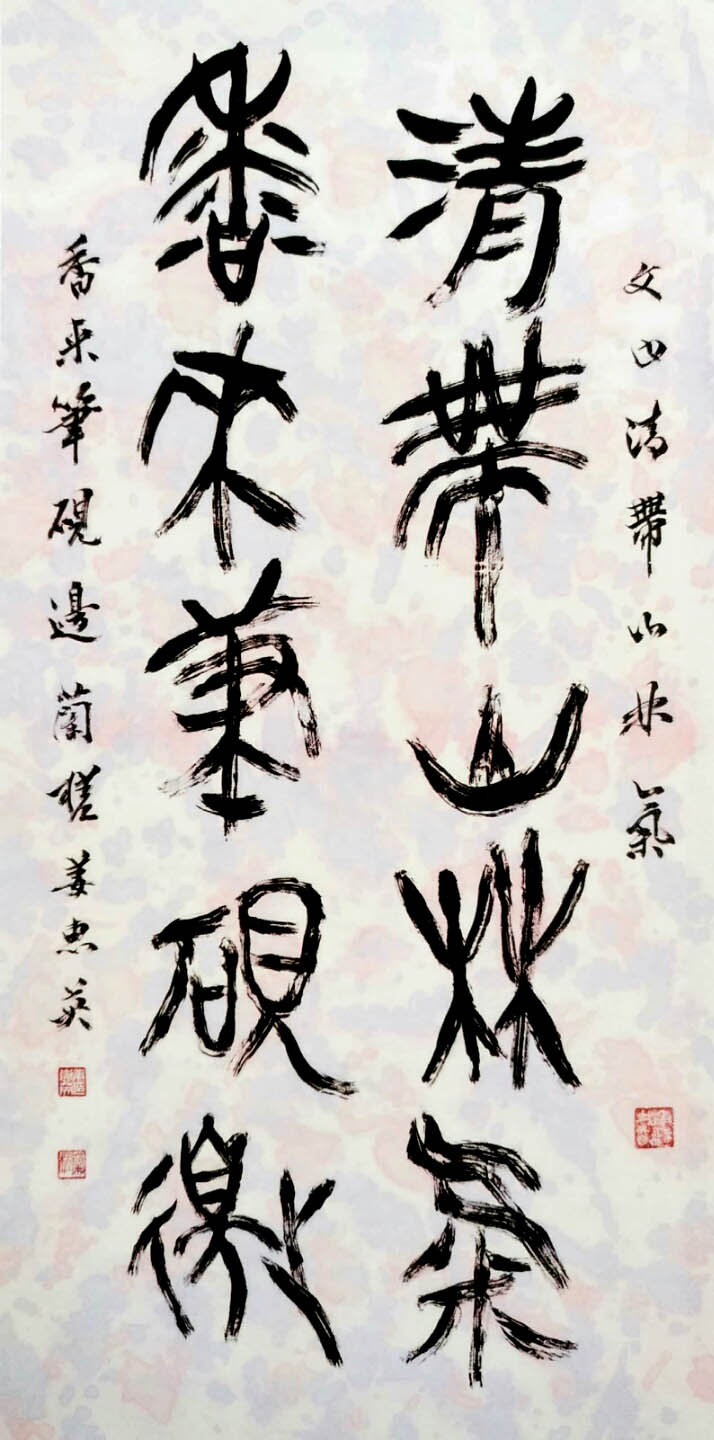 文曰清帶山林氣
清帶山林氣
香來筆硯邊
香來筆硯邊 蘭 姜惠英